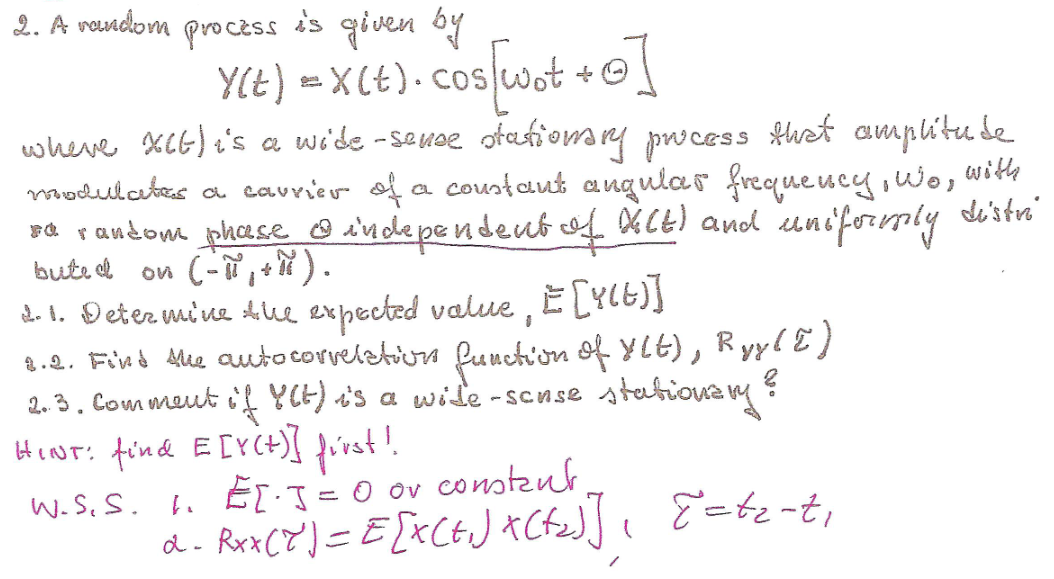 2. A random process is given by
Y(t) = X(t) · cos[ω₀t + Θ]
where X(t) is a wide-sense stationary process that amplitude
modulates a carrier of a constant angular frequency, ω₀, with
a random phase Θ independent of X(t) and uniformly distri
buted on (-π, +π).
2.1. Determine the expected value, E[Y(t)]
2.2. Find the autocorrelation function of Y(t), Ryy(τ)
2.3. Comment if Y(t) is a wide-sense stationary?
HINT: find E[Y(t)] first!
W.S.S. 1. E[·] = 0 or constant
2. Rxx(τ) = E[X(t₁) X(t₂)], τ = t₂ - t₁